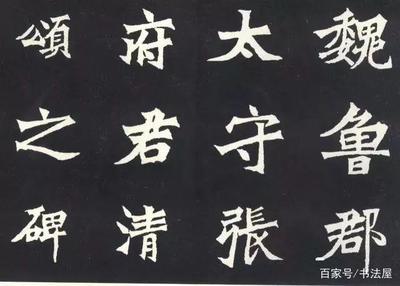 魏鲁郡
太守張
府君清
頌之碑
百家号/书法屋